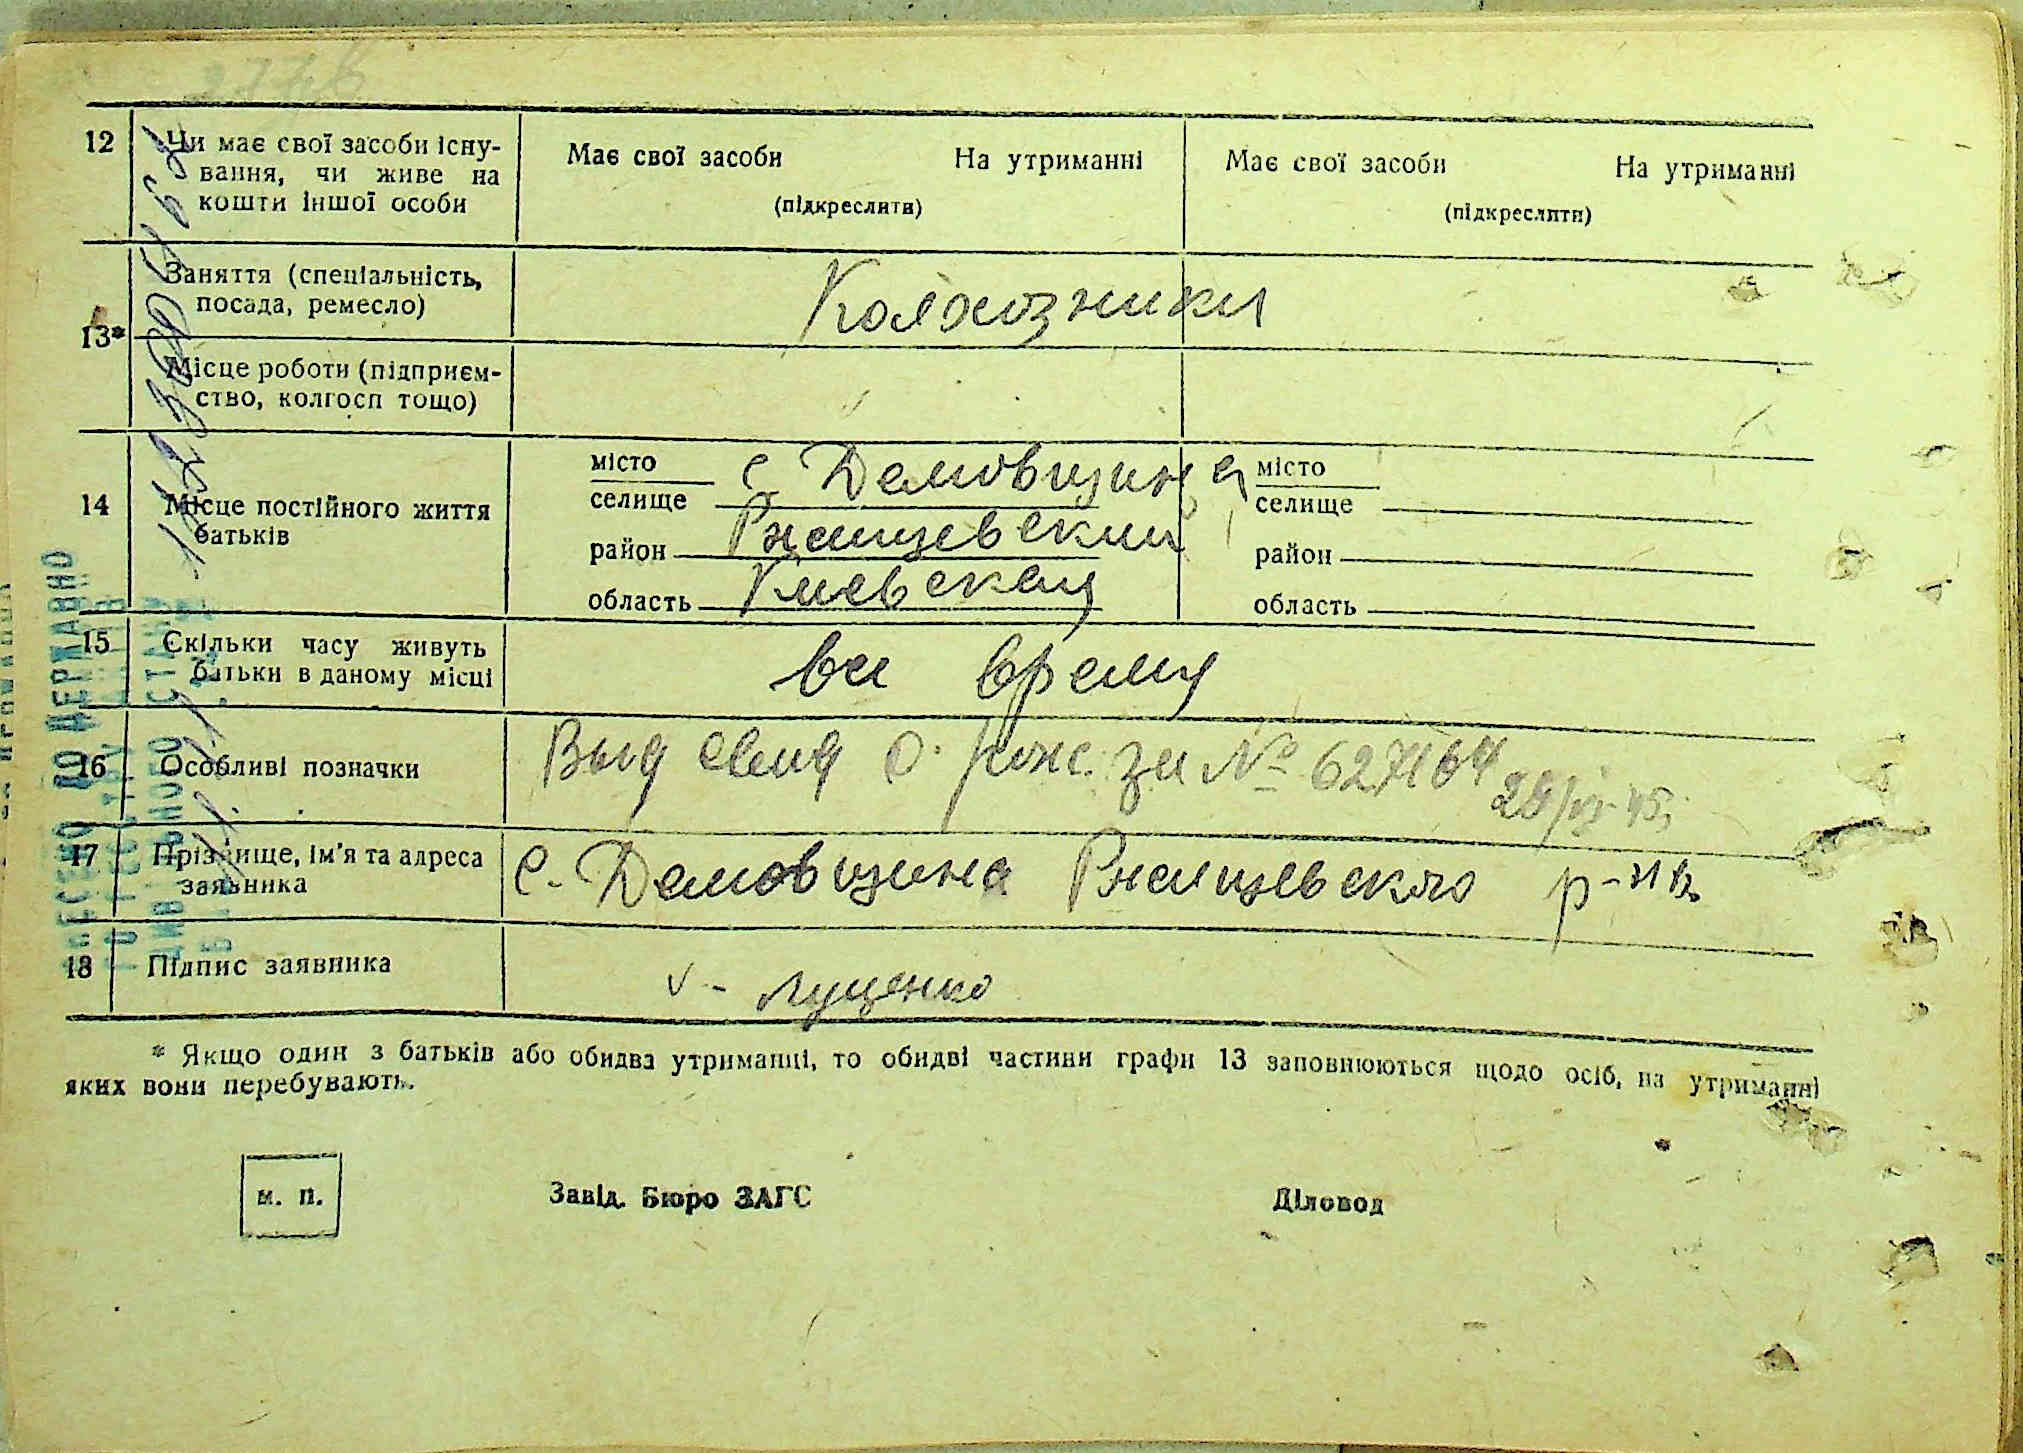 12 Чи має свої засоби існу-
вання, чи живе на
кошти іншої особи
Має свої засоби На утриманні
(підкреслити)
Має свої засоби На утриманні
(підкреслити)
13*
Заняття (спеціальність,
посада, ремесло)
Колхозники
Місце роботи (підприєм-
ство, колгосп тощо)
14 Місце постійного життя
батьків
місто
селище
с Демовщина
район Ржищевский
область Киевская
місто
селище
район
область
15 Скільки часу живуть
батьки в даному місці
все время
16 Особливі позначки
Выд свид о рожс. за № 627164
17 Прізвище, ім'я та адреса
заявника
С. Демовщина Ржищевского р-на
18 Підпис заявника
v - Луценко
* Якщо один з батьків або обидва утриманці, то обидві частини графи 13 заповнюються щодо осіб, на утриманні
яких вони перебувають.
м. п.
Завід. Бюро ЗАГС
Діловод
ВНЕСЕНО ДО ДЕРЖАВНО